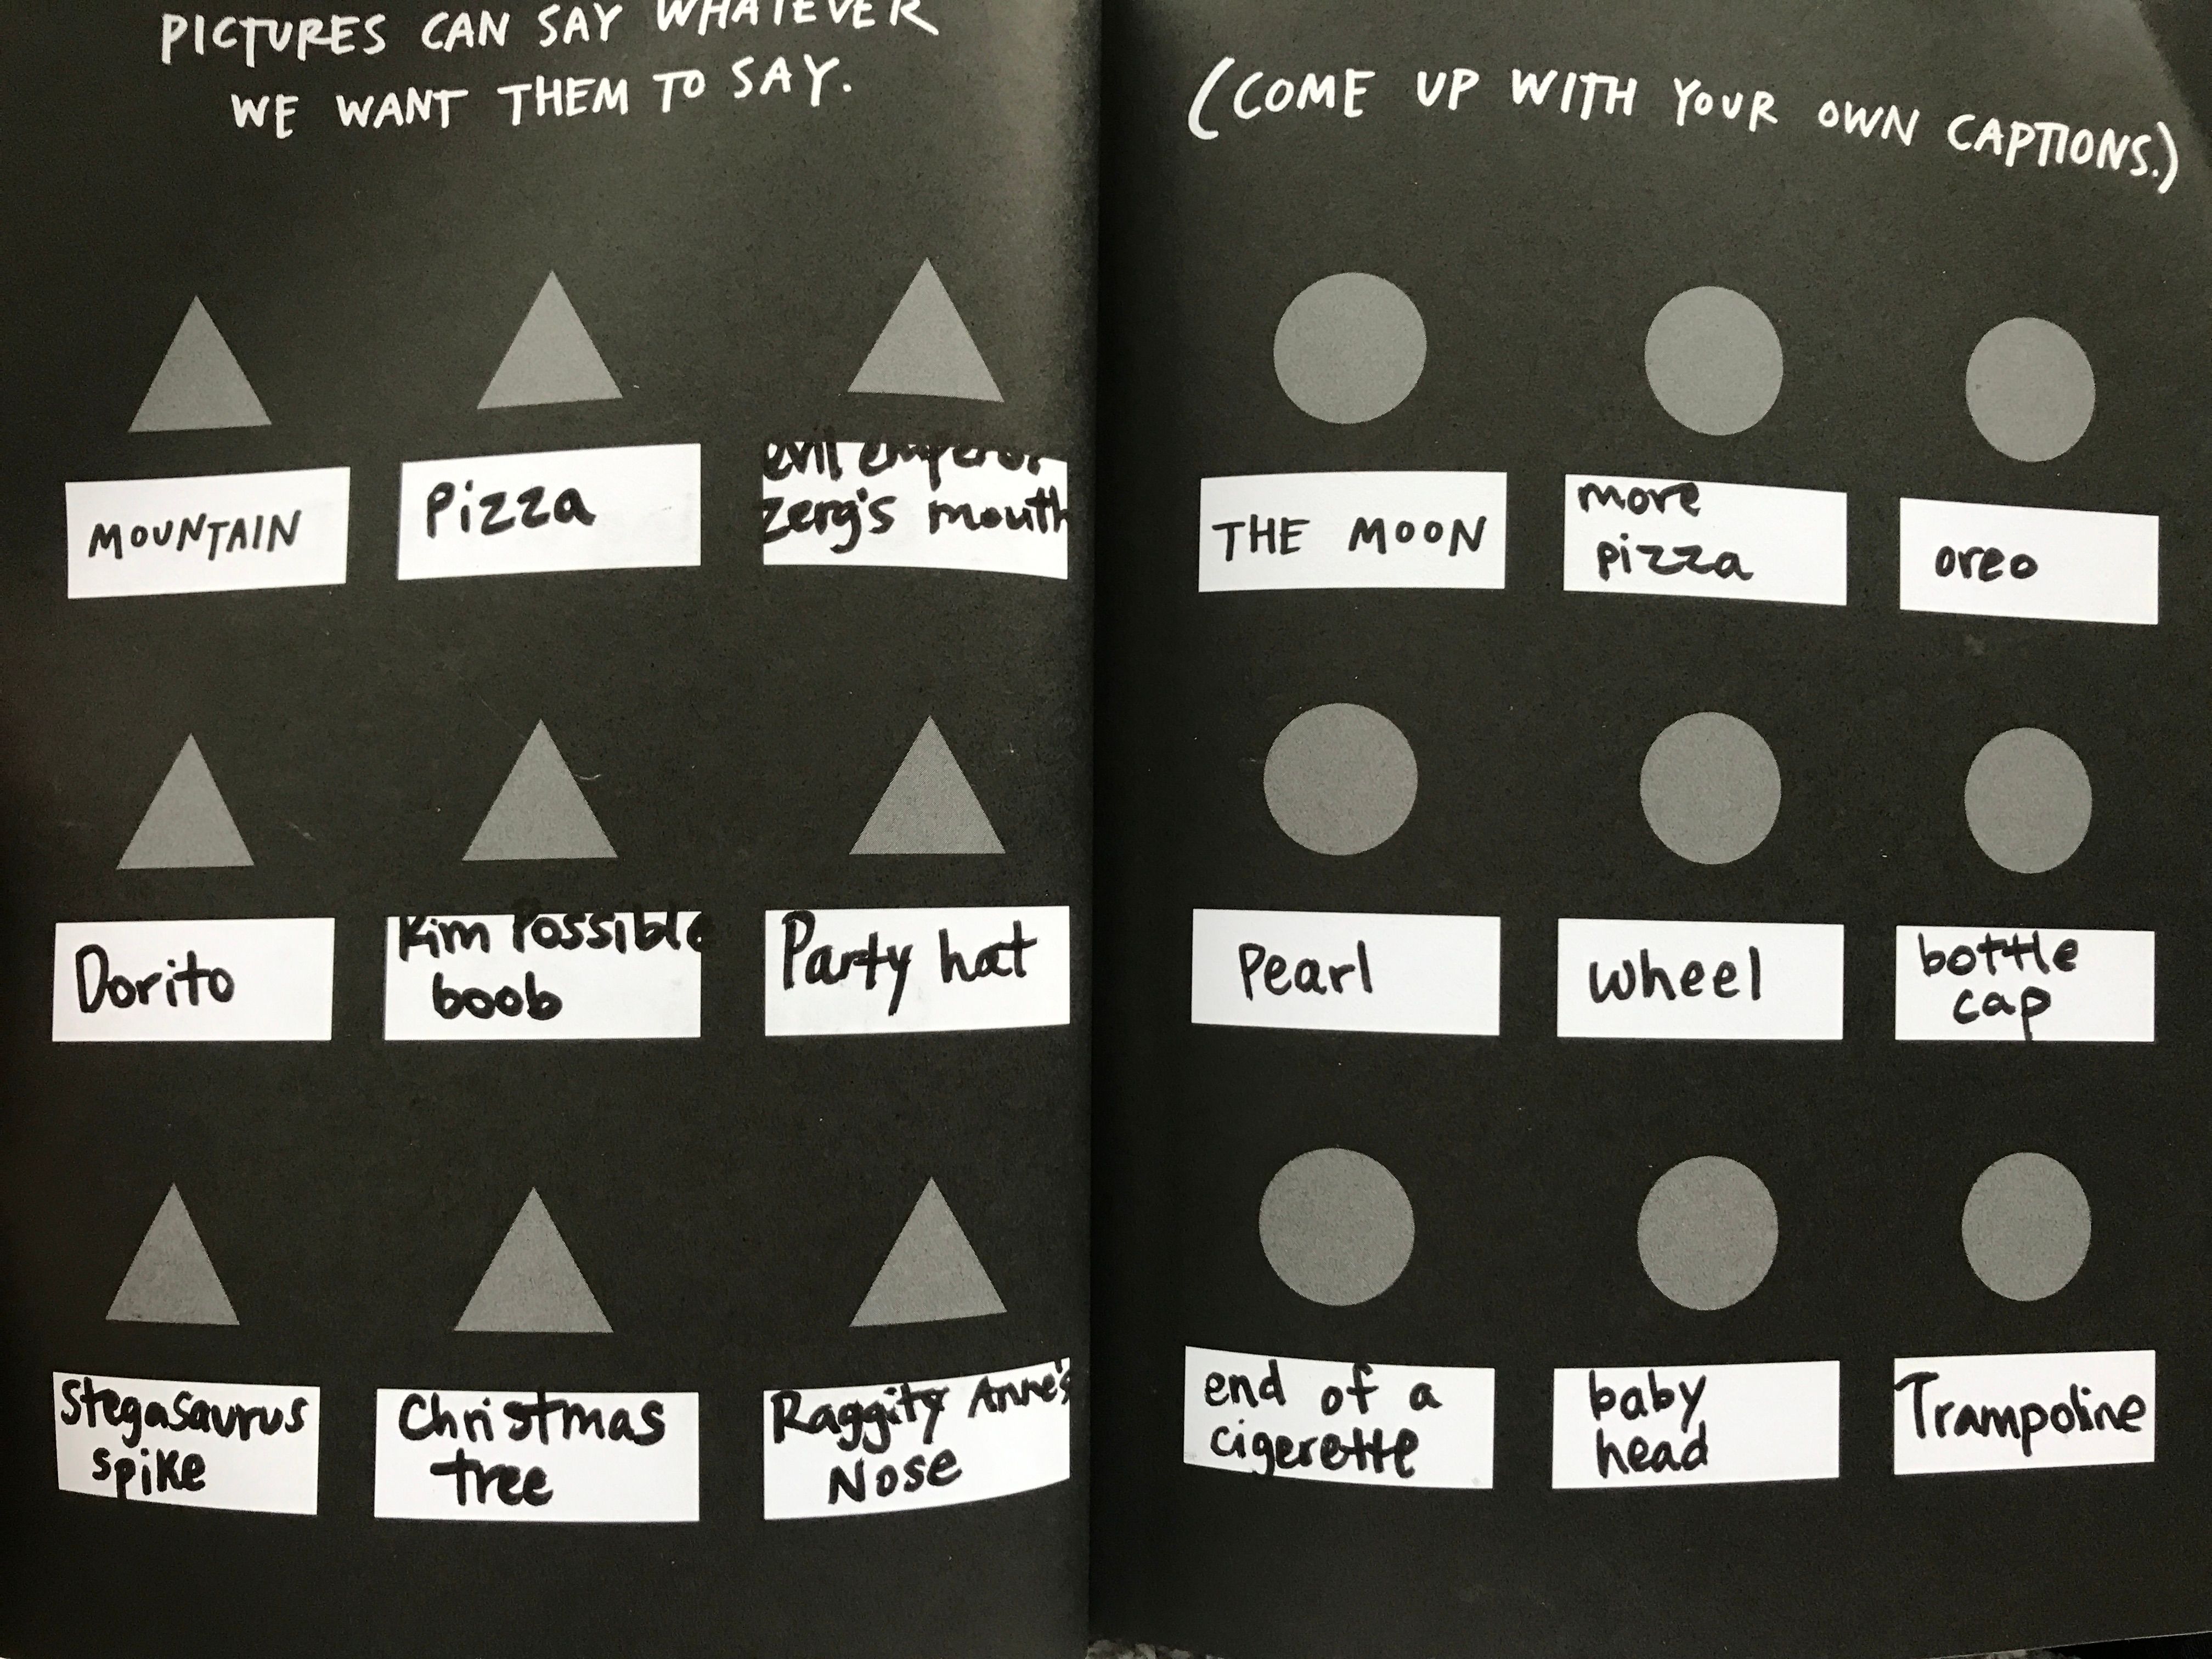 PICTURES CAN SAY WHATEVER
WE WANT THEM TO SAY.
MOUNTAIN
Pizza
evil emperor
zerg's mouth
Dorito
Kim Possible
boob
Party hat
Stegasaurus
spike
Christmas
tree
Raggity Anne's
Nose
(COME UP WITH YOUR OWN CAPTIONS.)
THE MOON
more
pizza
oreo
Pearl
wheel
bottle
cap
end of a
cigerette
baby
head
Trampoline